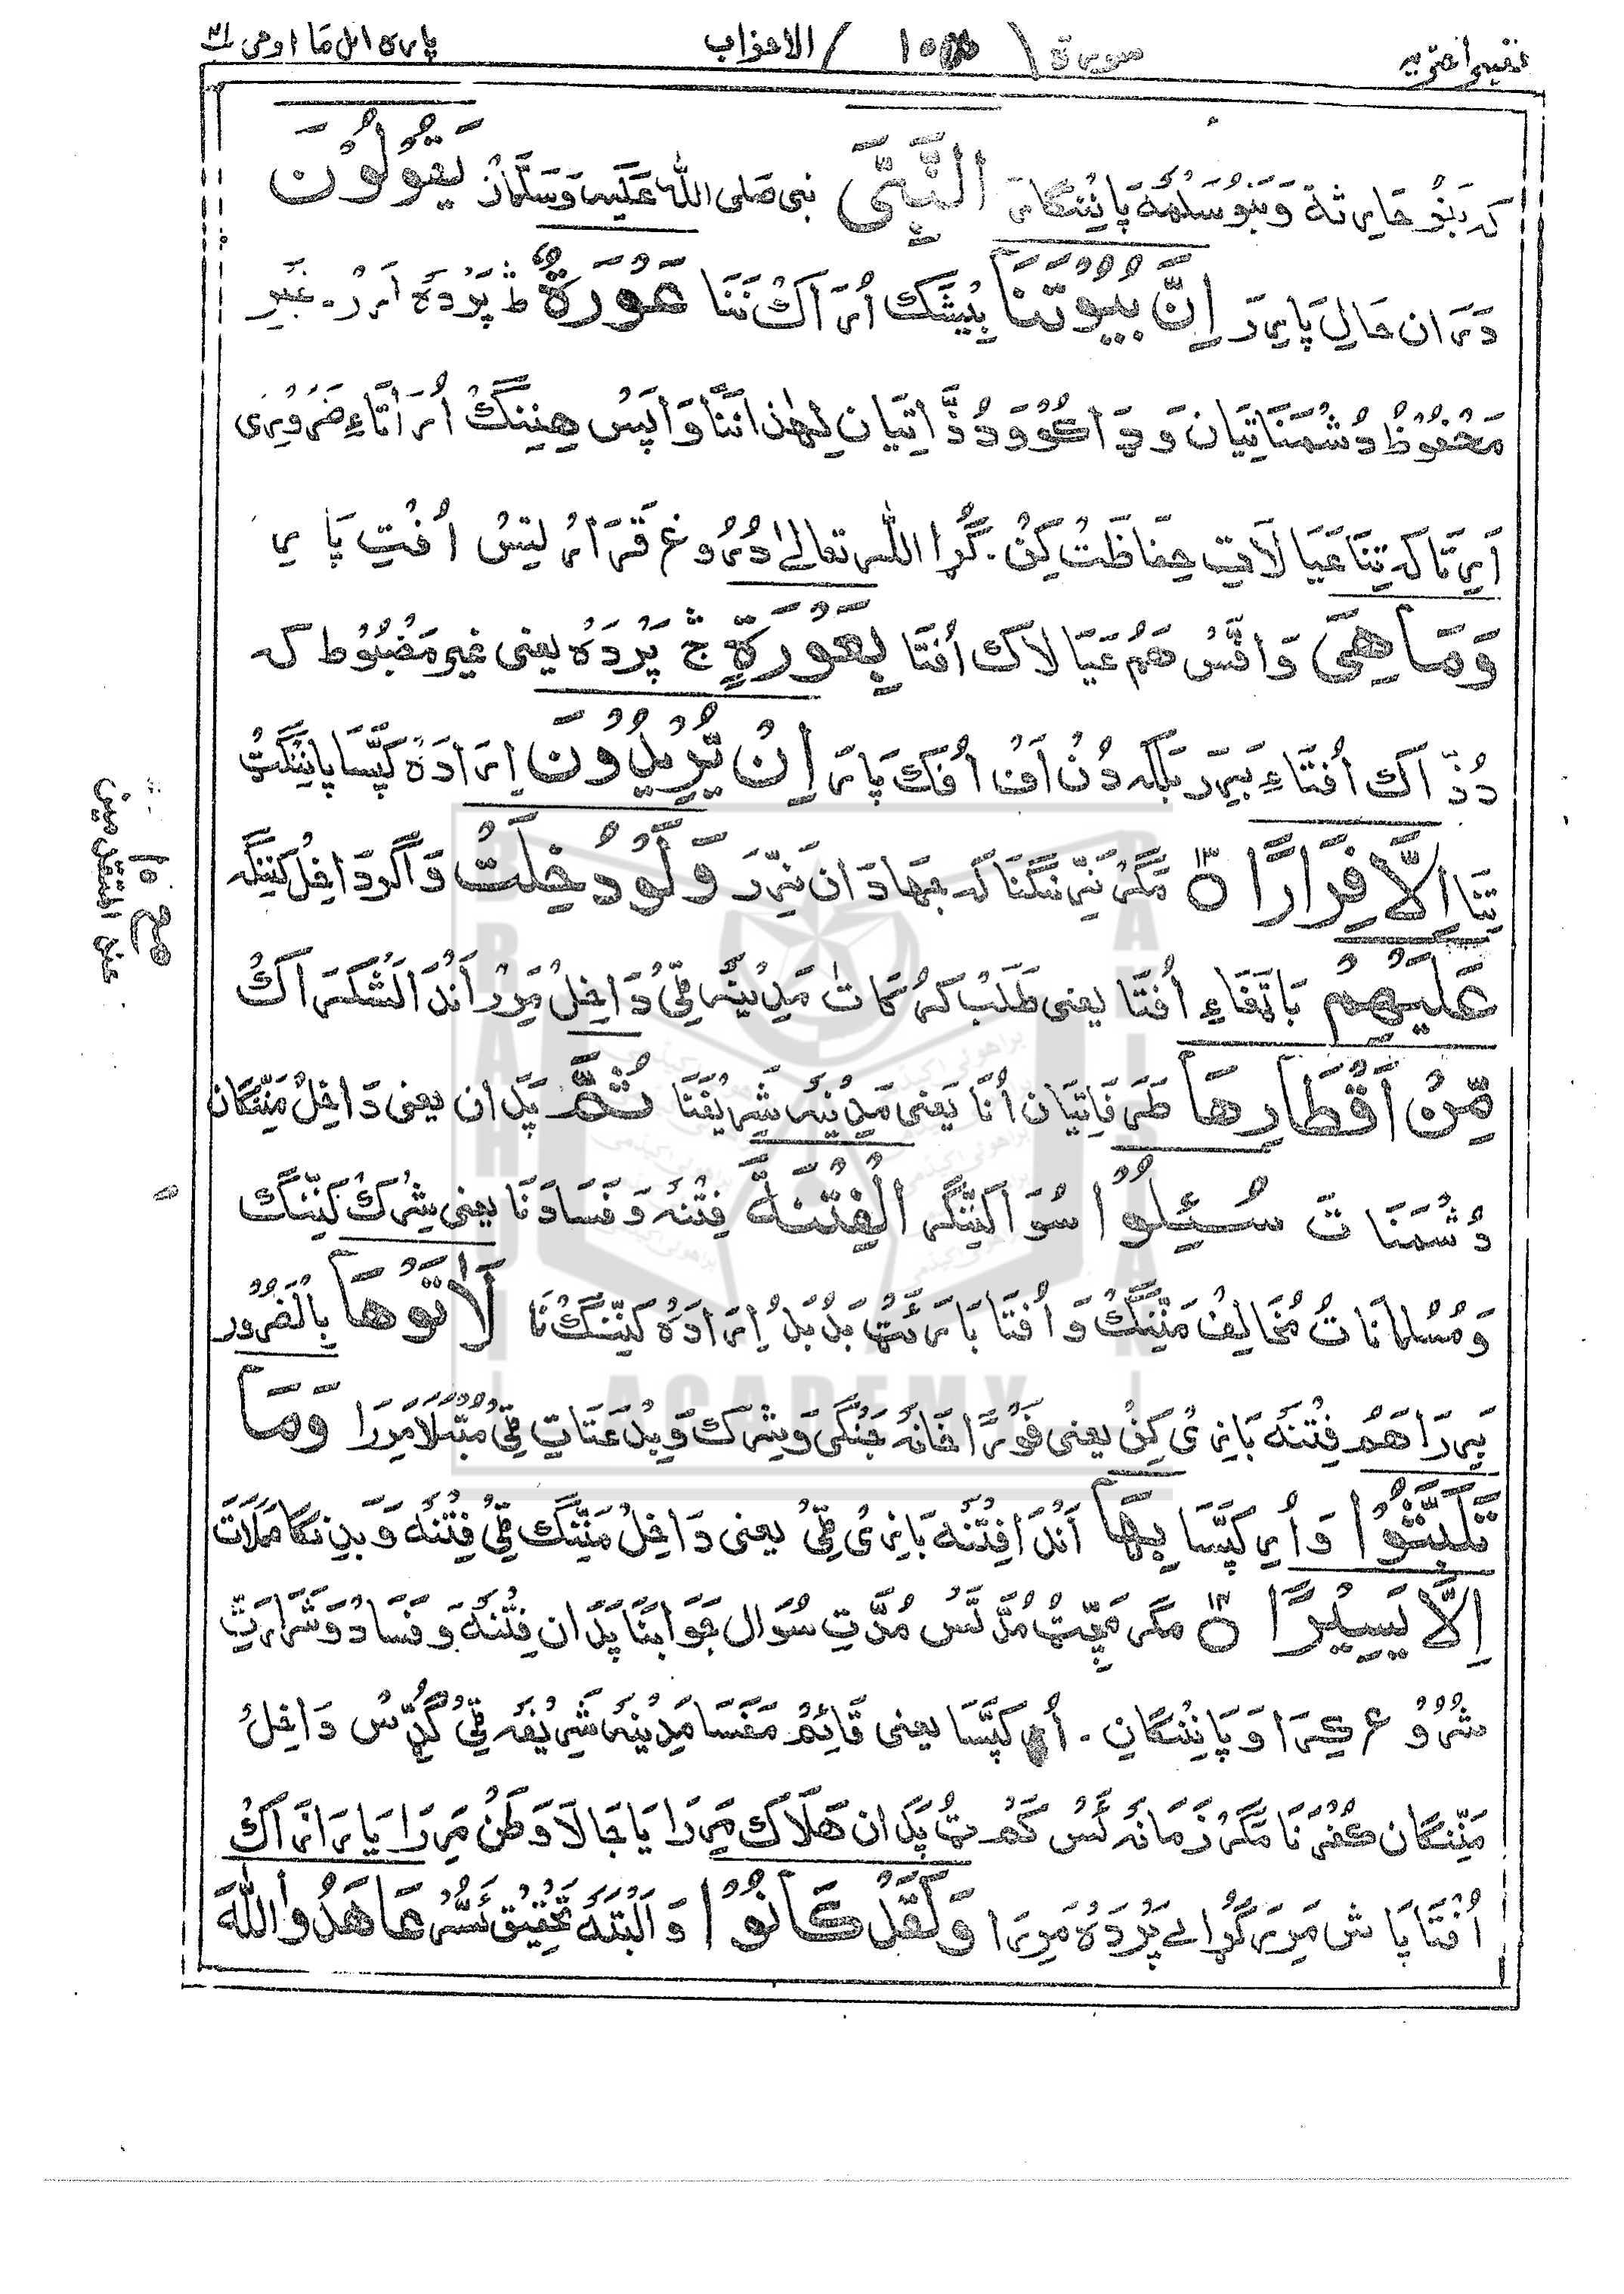 تفسیر اختریہ سورة ( الاحزاب ) پارہ اتل ما اوحی ۲۱
کہ بَنُو حَارِثة وَبَنُو سَلِمَہ پَائِنگَارَ النَّبِیَّ نبی صَلی اللہ عَلَیہ وَسَلَّمَانْ یَقُوْلُوْنَ
دَرَان حَالِ پَارِرَ اِنَّ بُیُوْتَنَا بِیْشَک اُرَاکْ نَنَا عَوْرَةٌ ط پَرْدَہ اَرْرْ۔ غَیر
مَحْفُوْظ دُشْمَنَاتِیَان وَ ڈَاکُوْوَ دُذَّاتِیَان لِہٰذا نَنَا وَاپَسْ ھِنِنگْ اُرَاتَاءِ ضَرُوْرِی
اَرِ تَاکہ تِنَا عَیَالَاتِ حِفَاظَتْ کِنْ۔ گُڑا اللہ تعالیٰ دُرُوغ قَرَارْ لِتِسْ اُفْتِ پَارِ
وَمَا هِیَ وَافَسْ هَمُ عَیَالَاکْ اُفْتَا بِعَوْرَةٍ ج پَرْدَہ یعنی غیر مَضْبُوْط کہ
دُذّاک اُفْتَاءِ بَرِّرْ بَلکہ دُنْ اَفْ اُفَک پَارَ اِنْ یُّرِیْدُوْنَ اِرَادَہ کَپَّسَا پَانِنگَتْ
تِنَا اِلَّا فِرَارًا ۱۳ مَگَرْ نَرِّنگنَا کہ جِہادَان نَرِّرَ وَلَوْ دُخِلَتْ وَاگر دَاخِلْ کَنِنگہ
عَلَیْهِمْ بَاتَغَاءِ اُفْتَا یعنی طَلَبْ کَرْ مَدِیْنَہ ٹِی دَاخِلْ مَرِرْ اَنْدَا لَشْکَرَاکْ
مِّنْ اَقْطَارِهَا طَرفَاتِیَان اُنَا یَعنی مَدِیْنَہ شَرِیْفَنَا ثُمَّ پَدَان یعنی دَاخِلْ مَنِّنگَان
دُشْمَنَاتَ سُئِلُوا سُوَال کَنِنگر الْفِتْنَةَ فِتْنَہ وَ فَسَادَنَا یعنی شِرْکْ کَنِّنگ
وَ مُسْلمانَاتْ مُخَالِفْ مَنِّنگْ وَ اُفْتَا بَارَئَتْ اِرَادَہ کَنِّنگْ نَا لَاٰتَوْهَا بِالضَرُوْر
بَرِرَا هَمُ فِتْنَہ بَازِیْ کِنْ یعنی فَوْرًا خَانَہ جَنگی وَشِرک وَ بِدعَتَاتِ ٹِی مُبْتَلَا مَرِرَا وَمَا
تَلَبَّثُوْا وَ اُرِ کَپَّسَا بِهَا اَنْدَا فِتْنَہ بَازِیْ ٹِی یعنی دَاخِلْ مَنِّنگ ٹِی فِتْنَہ وَ
اِلَّا یَسِیْرًا ۱۴ مَگر مَچِّٹْ مُدَّتَسْ مُدَّتِ سُوَال جَوَابْنَا پَدَان فِتْنَہ وَ فَسَادْ وَ شَرَارَتِ
شُرُوْع کِرَا وَ پَانِنگَانِ۔ اُرِ کَپَّسَا یعنی قَائِمْ مَفَسَا مَدِیْنَہ شَرِیْفَہ ٹِی گُڈِّسْ دَاخِلْ
مَنِّنگَان کُفْرنَا مَگَرْ زَمَانَہ ئَسْ کَمْ پَدَان هَلَاک مَرِرَا یَا جَالَاوَطَنْ مَرِرَا یَا رَازَاکْ
اُفْتَا پَاش مَرِرَ گُڑا بے پَرْدَہ مَرِرَا وَلَقَدْ کَانُوْا وَ اَلْبَتَہ تَحْقِیْق ئَسُّرْ عَاهَدُوا اللهَ
مع ۱۵
عند المتقدمین
BRAHUI ACADEMY